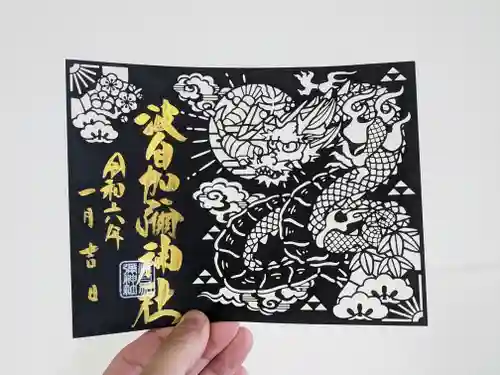 波自加彌神社
令和六年
一月吉日